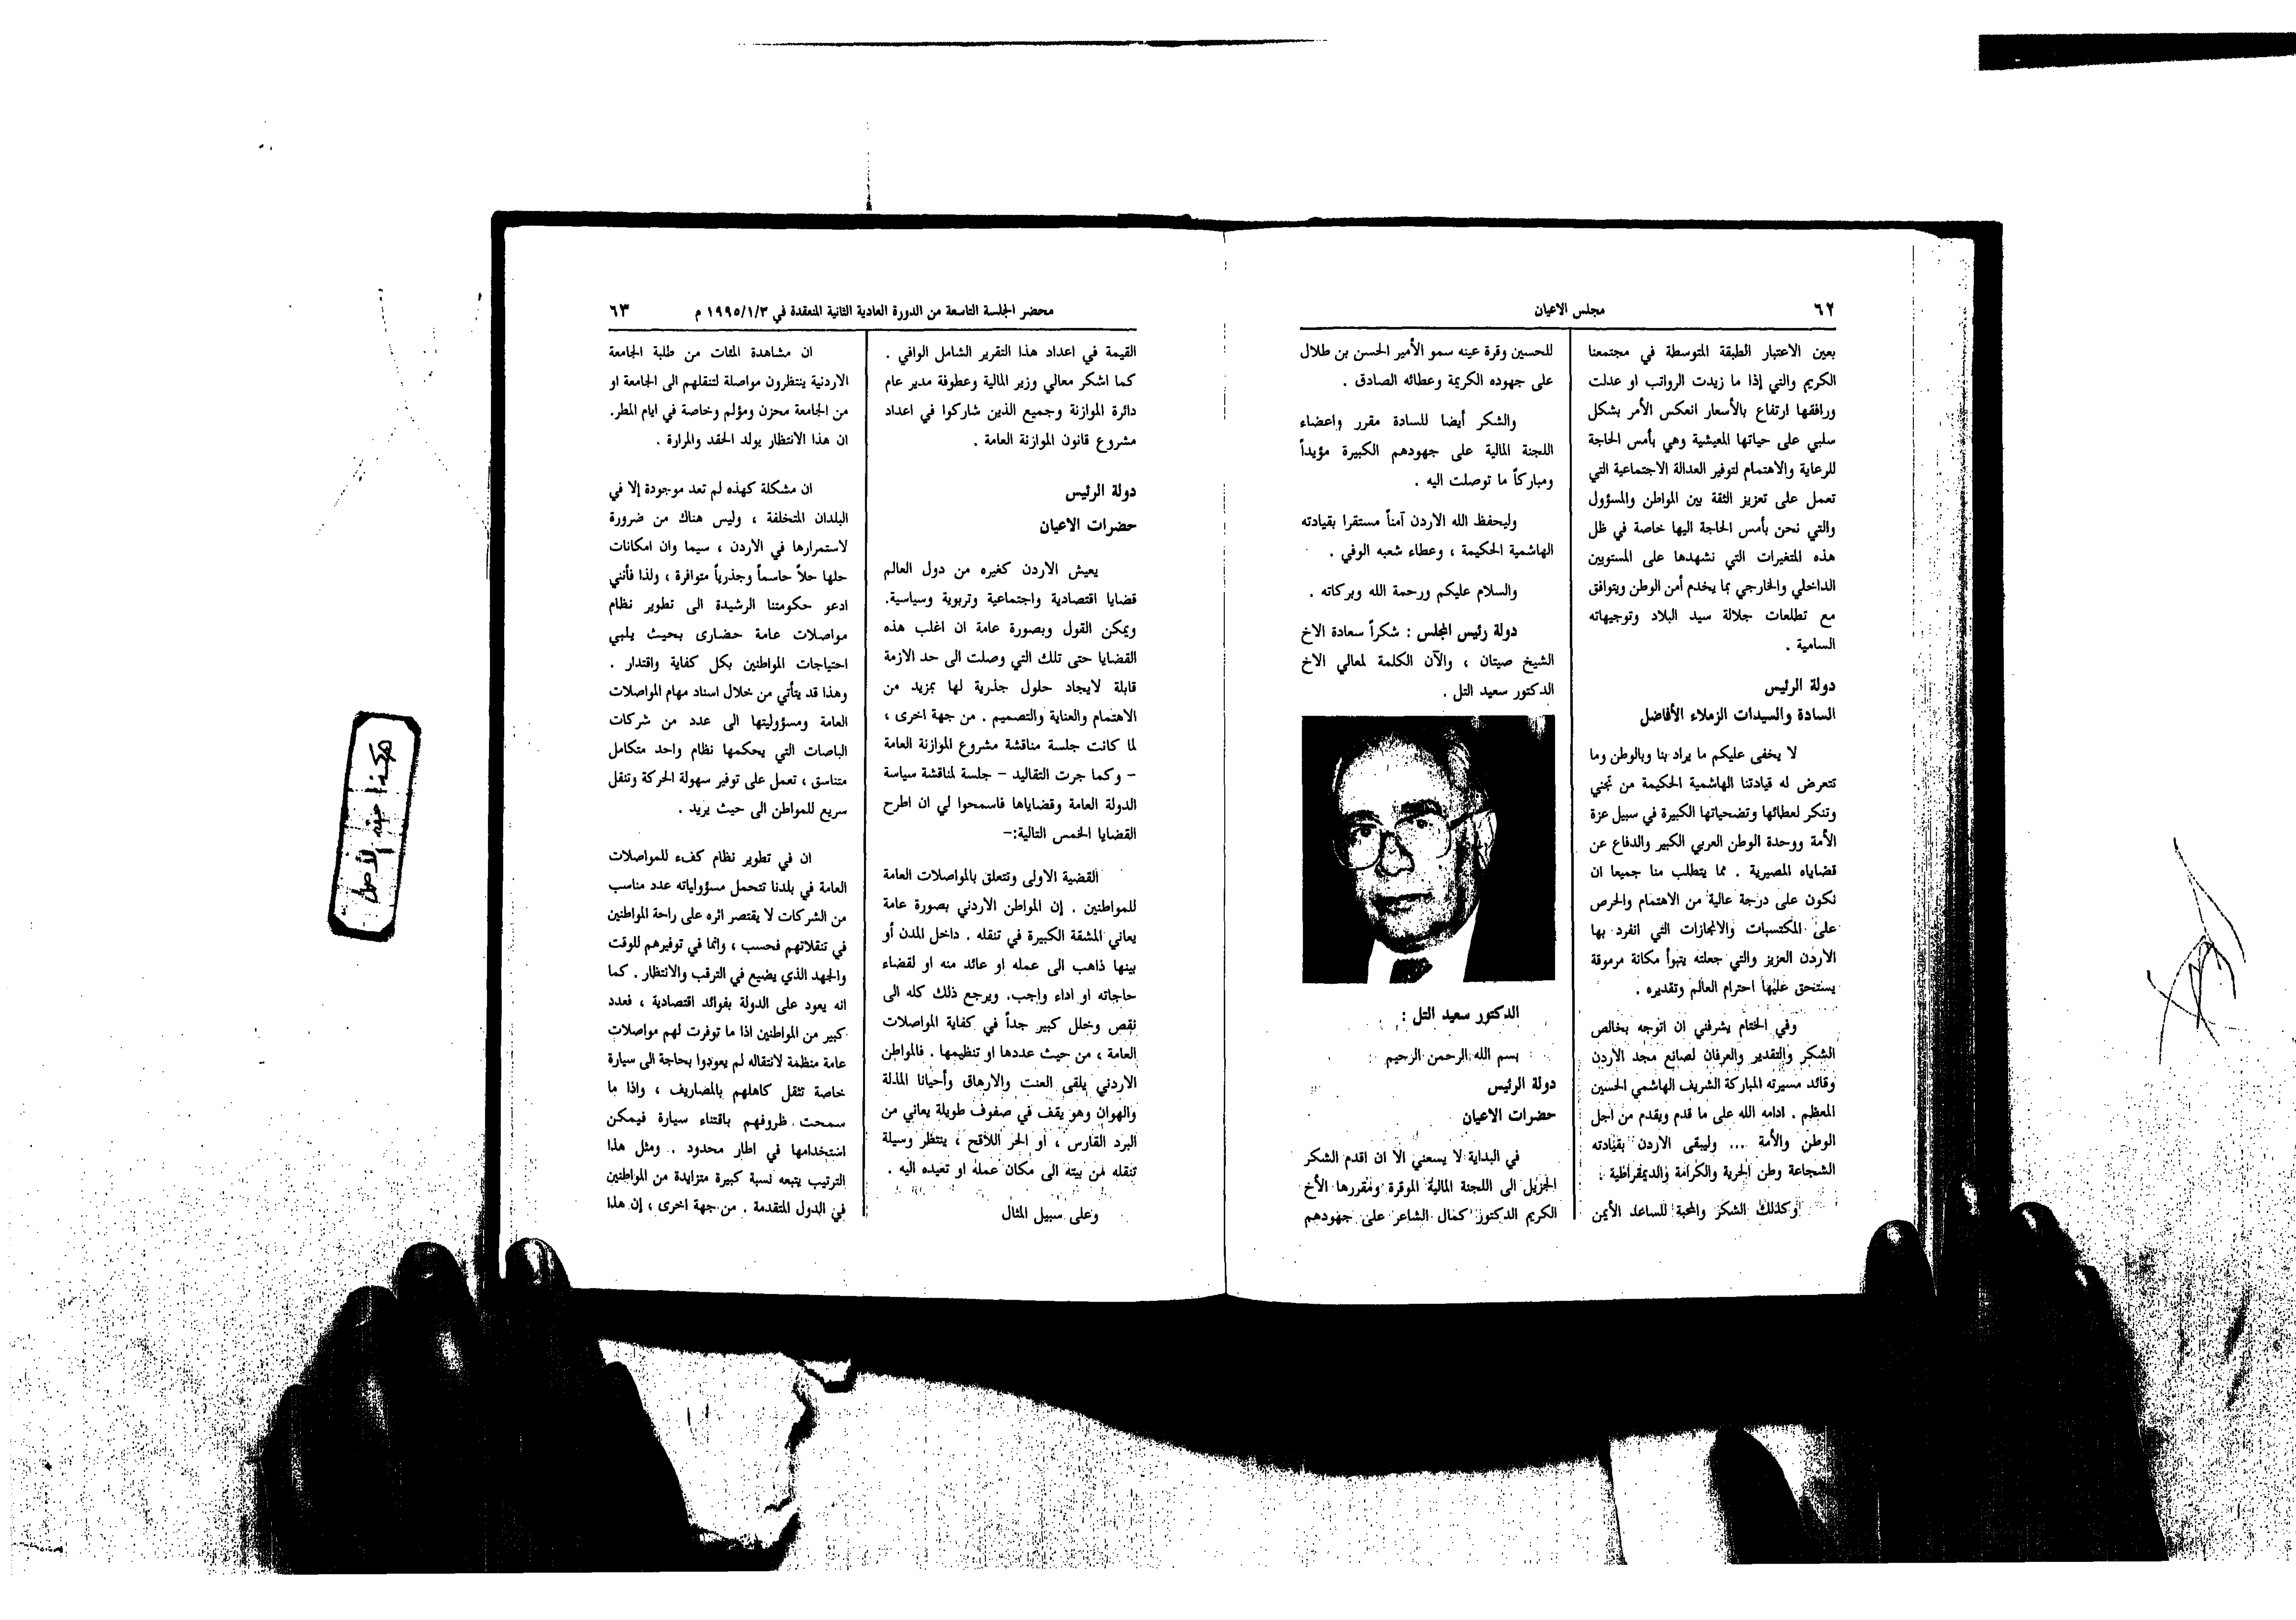 ٦٢
مجلس الاعيان
بعين الاعتبار الطبقة المتوسطة في مجتمعنا
الكريم والتي إذا ما زيدت الرواتب او عدلت
ورافقها ارتفاع بالأسعار انعكس الأمر بشكل
سلبي على حياتها المعيشية وهي بأمس الحاجة
للرعاية والاهتمام لتوفير العدالة الاجتماعية التي
تعمل على تعزيز الثقة بين المواطن والمسؤول
والتي نحن بأمس الحاجة اليها خاصة في ظل
هذه المتغيرات التي نشهدها على المستويين
الداخلي والخارجي بما يخدم أمن الوطن ويتوافق
مع تطلعات جلالة سيد البلاد وتوجيهاته
السامية .
دولة الرئيس
السادة والسيدات الزملاء الأفاضل
لا يخفى عليكم ما يراد بنا وبالوطن وما
تتعرض له قيادتنا الهاشمية الحكيمة من تجني
وتنكر لعطائها وتضحياتها الكبيرة في سبيل عزة
الأمة ووحدة الوطن العربي الكبير والدفاع عن
قضاياه المصيرية . مما يتطلب منا جميعا ان
نكون على درجة عالية من الاهتمام والحرص
على المكتسبات والانجازات التي انفرد بها
الاردن العزيز والتي جعلته يتبوأ مكانة مرموقة
يستحق عليها احترام العالم وتقديره .
وفي الختام يشرفني ان اتوجه بخالص
الشكر والتقدير والعرفان لصانع مجد الاردن
وقائد مسيرته المباركة الشريف الهاشمي الحسين
المعظم . ادامه الله على ما قدم ويقدم من اجل
الوطن والأمة ... وليبقى الاردن بقيادته
الشجاعة وطن الحرية والكرامة والديمقراطية .
وكذلك الشكر والمحبة للساعد الأيمن
للحسين وقرة عينه سمو الأمير الحسن بن طلال
على جهوده الكريمة وعطائه الصادق .
والشكر أيضا للسادة مقرر واعضاء
اللجنة المالية على جهودهم الكبيرة مؤيداً
ومباركاً ما توصلت اليه .
وليحفظ الله الاردن آمناً مستقرا بقيادته
الهاشمية الحكيمة ، وعطاء شعبه الوفي .
والسلام عليكم ورحمة الله وبركاته .
دولة رئيس المجلس : شكراً سعادة الاخ
الشيخ صيتان ، والآن الكلمة لمعالي الاخ
الدكتور سعيد التل .
الدكتور سعيد التل :
بسم الله الرحمن الرحيم
دولة الرئيس
حضرات الاعيان
في البداية لا يسعني الا ان اقدم الشكر
الجزيل الى اللجنة المالية الموقرة ومقررها الأخ
الكريم الدكتور كمال الشاعر على جهودهم
محضر الجلسة التاسعة من الدورة العادية الثانية المنعقدة في ١٩٩٥/١/٣ م
٦٣
القيمة في اعداد هذا التقرير الشامل الوافي .
كما اشكر معالي وزير المالية وعطوفة مدير عام
دائرة الموازنة وجميع الذين شاركوا في اعداد
مشروع قانون الموازنة العامة .
دولة الرئيس
حضرات الاعيان
يعيش الاردن كغيره من دول العالم
قضايا اقتصادية واجتماعية وتربوية وسياسية.
ويمكن القول وبصورة عامة ان اغلب هذه
القضايا حتى تلك التي وصلت الى حد الازمة
قابلة لايجاد حلول جذرية لها بمزيد من
الاهتمام والعناية والتصميم . من جهة اخرى ،
لما كانت جلسة مناقشة مشروع الموازنة العامة
– وكما جرت التقاليد – جلسة لمناقشة سياسة
الدولة العامة وقضاياها فاسمحوا لي ان اطرح
القضايا الخمس التالية:–
القضية الاولى وتتعلق بالمواصلات العامة
للمواطنين . إن المواطن الاردني بصورة عامة
يعاني المشقة الكبيرة في تنقله . داخل المدن أو
بينها ذاهب الى عمله او عائد منه او لقضاء
حاجاته او اداء واجب. ويرجع ذلك كله الى
نقص وخلل كبير جداً في كفاية المواصلات
العامة ، من حيث عددها او تنظيمها . فالمواطن
الاردني يلقى العنت والارهاق وأحيانا المذلة
والهوان وهو يقف في صفوف طويلة يعاني من
البرد القارس ، أو الحر اللاقح ، ينتظر وسيلة
تنقله من بيته الى مكان عمله او تعيده اليه .
وعلى سبيل المثال
ان مشاهدة المئات من طلبة الجامعة
الاردنية ينتظرون مواصلة لتنقلهم الى الجامعة او
من الجامعة محزن ومؤلم وخاصة في ايام المطر.
ان هذا الانتظار يولد الحقد والمرارة .
ان مشكلة كهذه لم تعد موجودة إلا في
البلدان المتخلفة ، وليس هناك من ضرورة
لاستمرارها في الاردن ، سيما وان امكانات
حلها حلاً حاسماً وجذرياً متوافرة ، ولذا فأنني
ادعو حكومتنا الرشيدة الى تطوير نظام
مواصلات عامة حضارى بحيث يلبي
احتياجات المواطنين بكل كفاية واقتدار .
وهذا قد يتأتي من خلال اسناد مهام المواصلات
العامة ومسؤوليتها الى عدد من شركات
الباصات التي يحكمها نظام واحد متكامل
متناسق ، تعمل على توفير سهولة الحركة وتنقل
سريع للمواطن الى حيث يريد .
ان في تطوير نظام كفء للمواصلات
العامة في بلدنا تتحمل مسؤولياته عدد مناسب
من الشركات لا يقتصر اثره على راحة المواطنين
في تنقلاتهم فحسب ، وانما في توفيرهم للوقت
والجهد الذي يضيع في الترقب والانتظار . كما
انه يعود على الدولة بفوائد اقتصادية ، فعدد
كبير من المواطنين اذا ما توفرت لهم مواصلات
عامة منظمة لانتقاله لم يعودوا بحاجة الى سيارة
خاصة تثقل كاهلهم بالمصاريف ، واذا ما
سمحت ظروفهم باقتناء سيارة فيمكن
استخدامها في اطار محدود . ومثل هذا
الترتيب يتبعه نسبة كبيرة متزايدة من المواطنين
في الدول المتقدمة . من جهة اخرى ، إن هذا